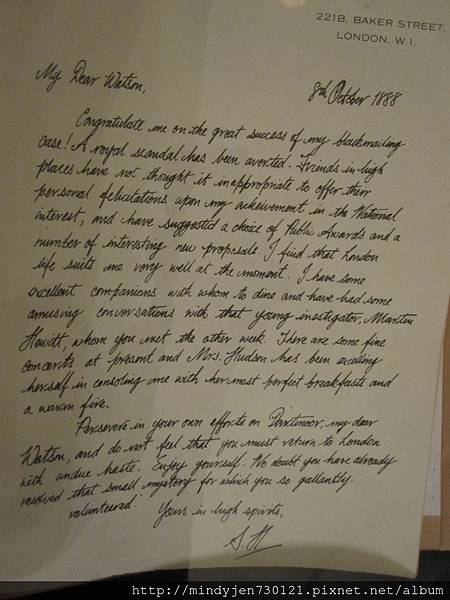 221B, BAKER STREET,
LONDON, W.1.
My Dear Watson,
8th October 1888
Congratulate me on the great success of my blackmailing
case! A royal scandal has been averted. Friends in high
places have not thought it inappropriate to offer their
personal felicitations upon my acheivement in the National
interest, and have suggested a choice of Public Awards and a
number of interesting new proposals. I find that London
life suits me very well at the moment. I have some
excellent companions with whom to dine and have had some
amusing conversations with that young investigator, Martin
Hewitt, whom you met the other week. There are some fine
concerts at present and Mrs. Hudson has been excelling
herself in consoling me with her most perfect breakfasts and
a warm fire.
Persevere in your own efforts on Dartmoor, my dear
Watson, and do not feel that you must return to London
with undue haste. Enjoy yourself. No doubt you have already
resolved that small mystery for which you so gallantly
volunteered.
Yours in high spirits,
S.H
http://mindyjen730121.pixnet.net/album